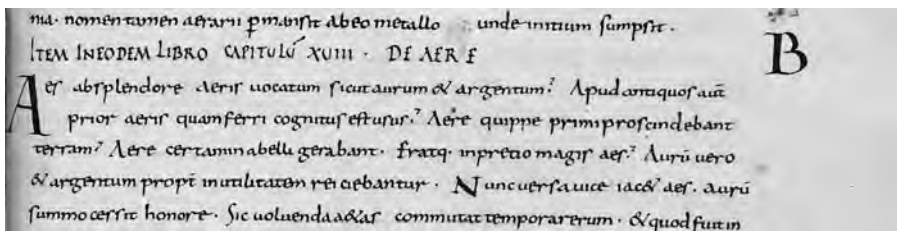 ma. nomen tamen aerarii pmansit ab eo metallo unde initium sumpsit.
ITEM IN EODEM LIBRO CAPITULŪ XVIII · DE AERE
B
Aes absplendore aeris uocatum sicut aurum & argentum. Apud antiquos aut̄
prior aeris quam ferri cognitus est usus. Aere quippe primi proscindebant
terram. Aere certamina belli gerabant. Eratq· in pretio magis aes. Aurū uero
& argentum propt̄ inutilitaten reiciebantur. Nunc uersa uice iac& aes. aurū
summo cessit honore. Sic uoluenda a&as commutat tempora rerum. & quod fuit in